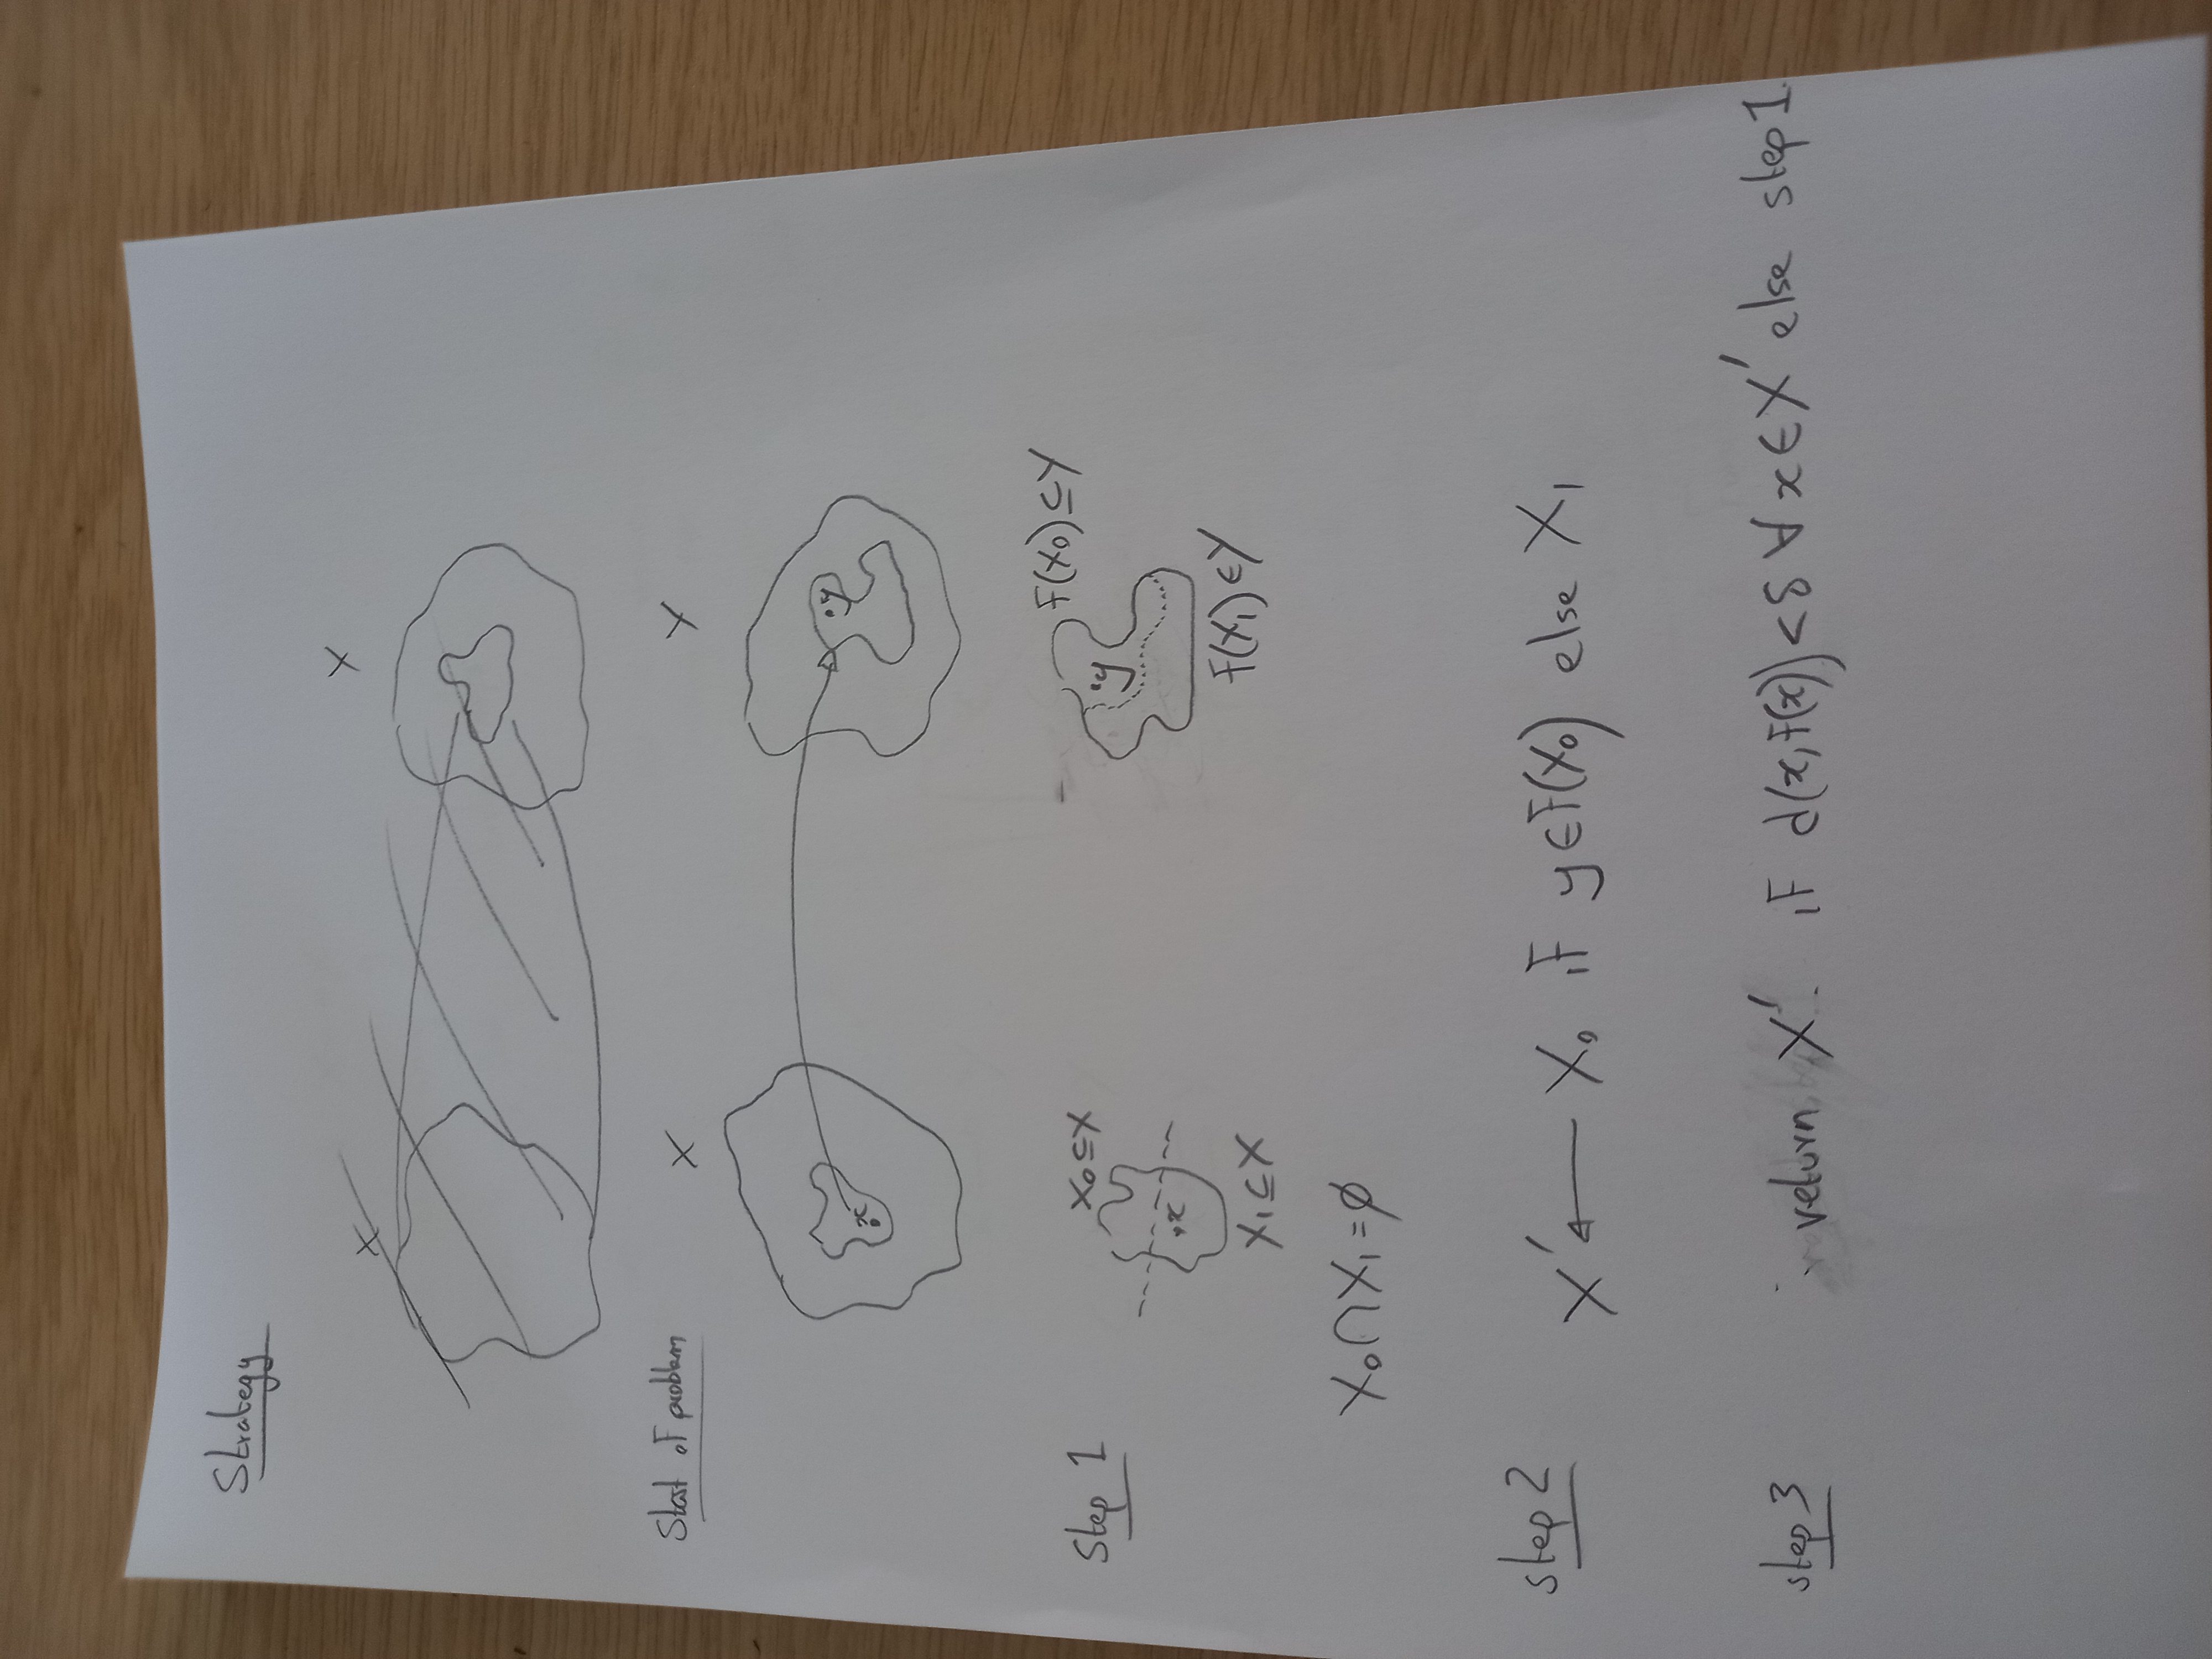 Strategy
X Y
Start of problem X Y
x y
Step 1 X₀⊆X F(X₀)⊆Y
x y
X₁⊆X F(X₁)∈Y
X₀∩X₁=∅
step 2 X′ ← X₀ if y∈F(X₀) else X₁
step 3 return X′. if d(x,F(x))<δ ∀ x∈X′ else step 1.